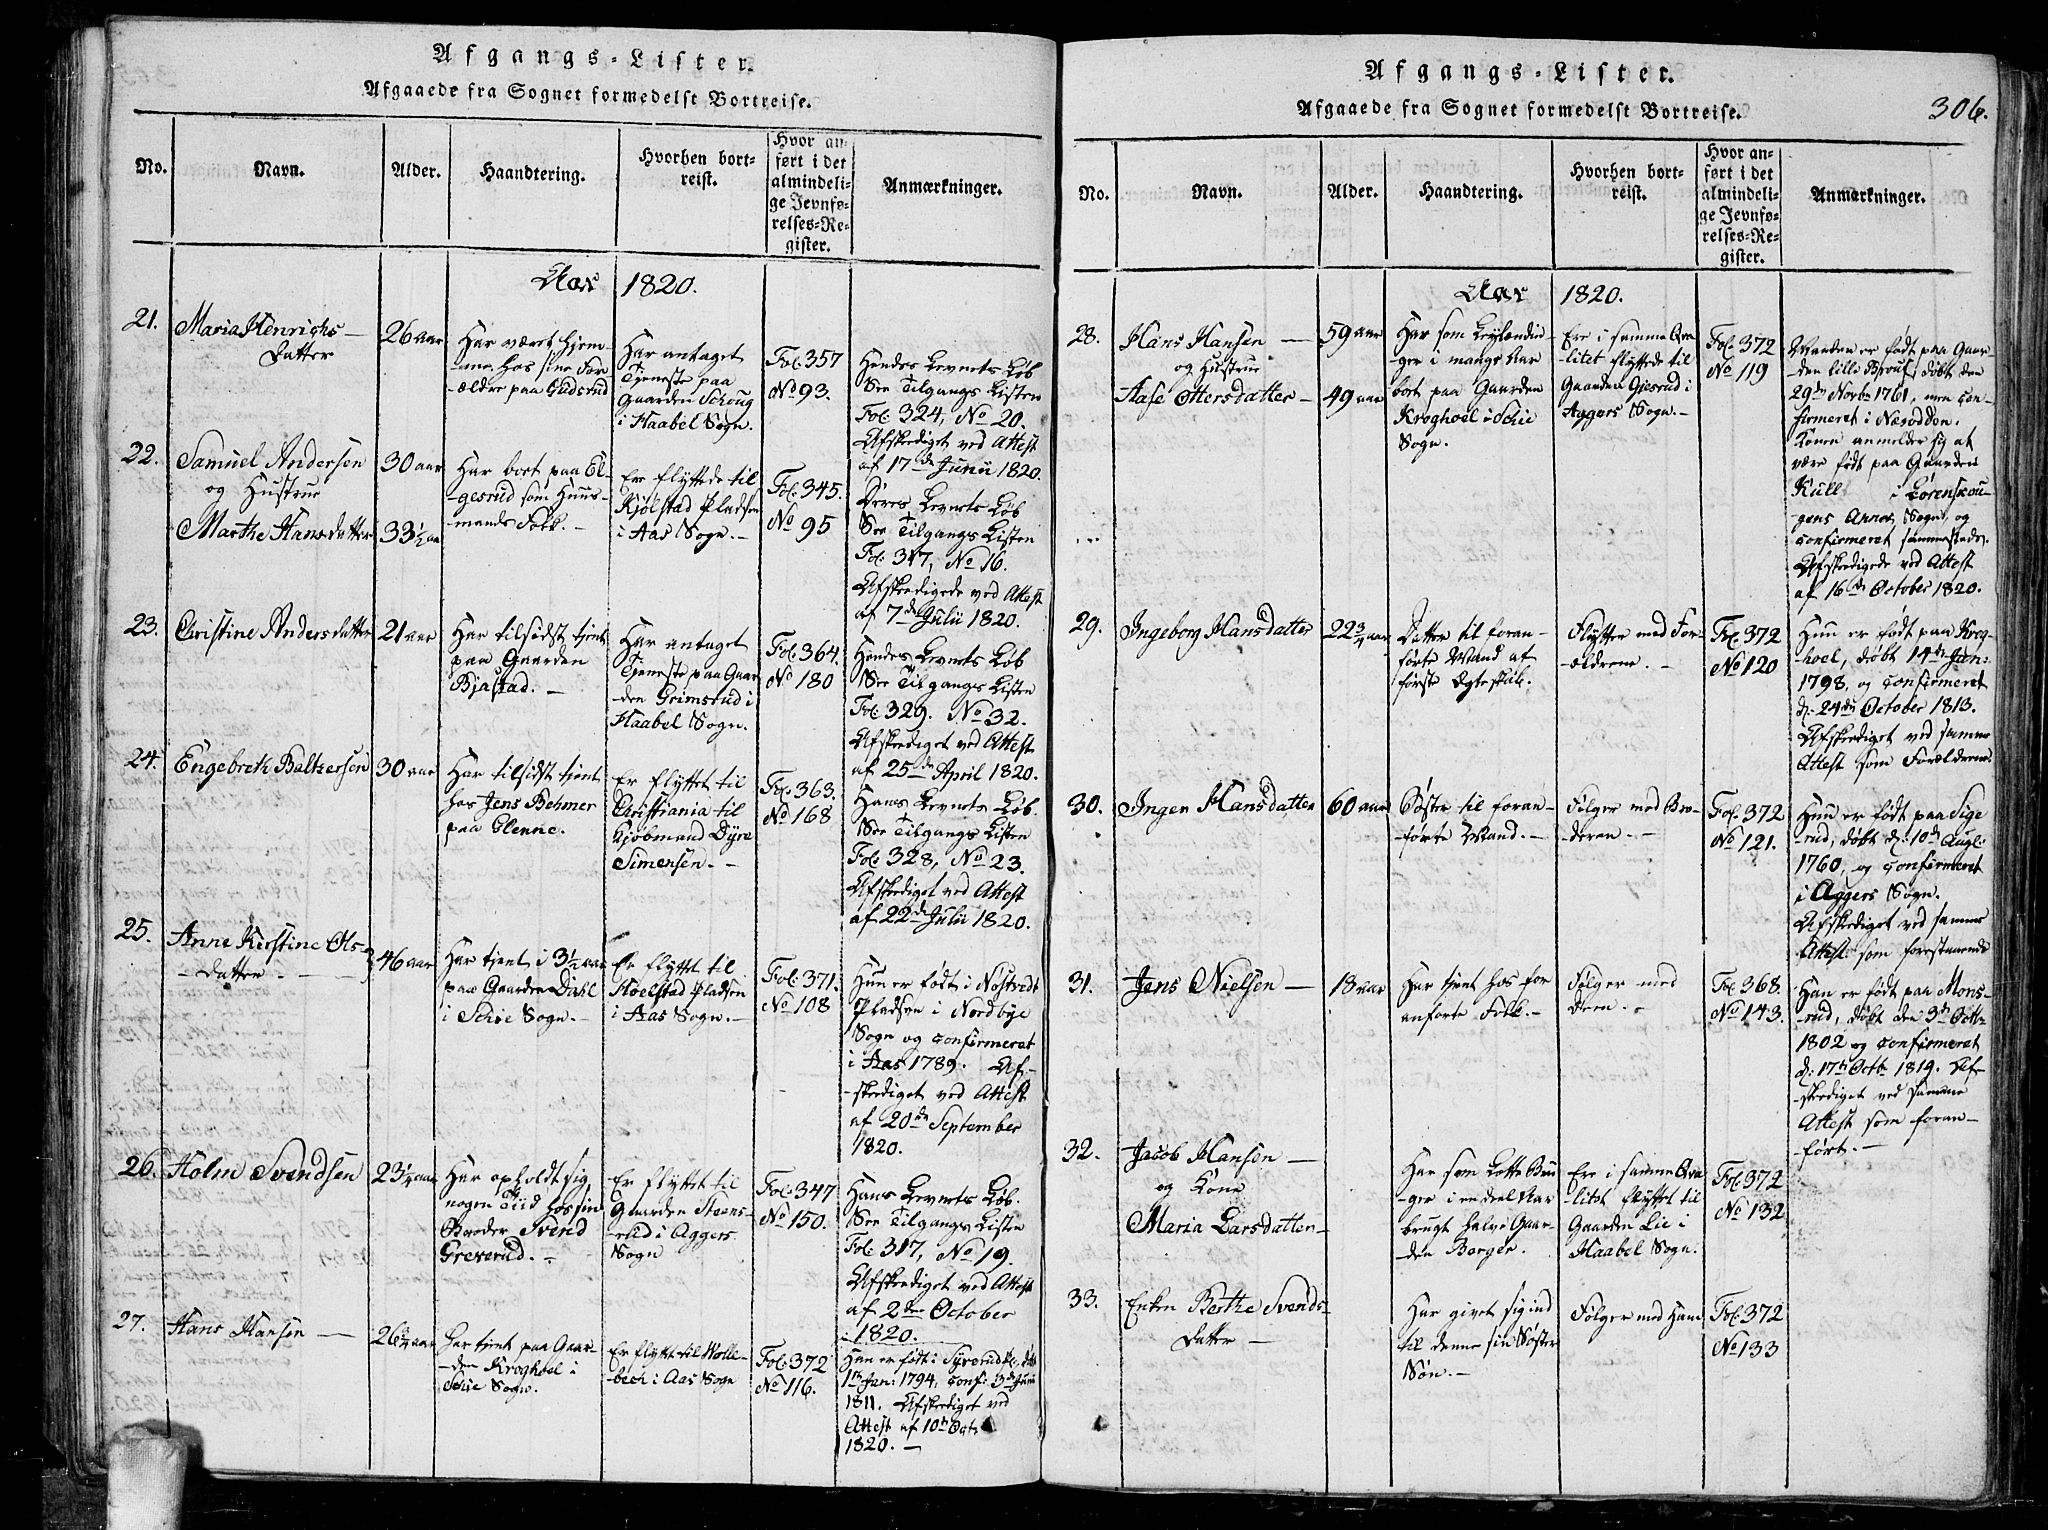 Afgangs-Lister.
Afgaaede fra Sognet formedelst Bortreise.
No.
Navn.
Alder.
Haandtering.
Hvorhen bort-
reist.
Hvor an-
ført i det
almindeli-
ge Jevnfø-
relses-Re-
gister.
Anmærkninger.
Aar 1820.
21.
Maria Henrichs-
datter
26 aar
Har været hjem-
me hos sine For-
ældre paa Gudsrud
Har antaget
Tjeneste paa
Gaarden Schoug
i Haabel Sogn.
Fol. 357
No 93.
Hendes Levnets Løb
See Tilgangs Listen
Fol. 324, No 20.
Afskediget ved Attest
af 17de Junii 1820.
22.
Samuel Andersen
og Hustrue
Marthe Hansdatter
30 aar
33½ aar
Har boet paa El-
gesrud som Huus-
mands Folk.
Ere flyttede til
Kjølstad Pladsen
i Aas Sogn.
Fol. 345.
No 95
Deres Levnets Løb
See Tilgangs Listen
Fol. 317, No 16.
Afskedigede ved Attest
af 7de Julii 1820.
23.
Christine Andersdatter
21 aar
Har tilsidst tjent
paa Gaarden
Bjastad.
Har antaget
Tjeneste paa Gaar
den Grimsrud i
Haabel Sogn.
Fol. 364.
No 180
Hendes Levnets Løb
See Tilgangs Listen
Fol. 329. No 32.
Afskediget ved Attest
af 25de April 1820.
24.
Engebreth Baltzersen
30 aar
Har tilsidst tjent
hos Jens Behmer
paa Glenne.
Er flyttet til
Christiania til
Kjøbmand Dyre
Simensen.
Fol. 363.
No 168
Hans Levnets Løb
See Tilgangs Listen
Fol. 328, No 23.
Afskediget ved Attest
af 22de Julii 1820.
25.
Anne Kirstine Ols-
datter
46 aar
Har tjent i 3½ aar
paa Gaarden Dahl
i Schie Sogn.
Er flyttet til
Hoelstad Pladsen
i Aas Sogn.
Fol. 371.
No 108
Hun er født i Nøstvedt
Pladsen i Nordbye
Sogn og confirmeret
i Aas 1789. Af-
skediget ved Attest
af 20de September
1820.
26.
Holm Svendsen
23¼ aar
Har opholdt sig
nogen Tiid hos sin
Broder Svend
Greverud.
Er flyttet til
Gaarden Steens-
rud i Aggers
Sogn
Fol. 347
No 150.
Hans Levnets Løb.
See Tilgangs Listen
Fol. 317, No 19.
Afskediget ved Attest
af 2den October
1820.
27.
Hans Hansen
26¾ aar
Har tjent paa Gaar-
den Kroghoel i
Schie Sogn.
Er flyttet til Wolle-
bech i Aas Sogn
Fol. 372
No 116.
Han er født i Syverud Pl.
1ste Jan: 1794, Conf: 3de Junii
1811. Afskediget ved
Attest af 10de Oct.
1820.
Afgangs-Lister.
Afgaaede fra Sognet formedelst Bortreise.
306.
No.
Navn.
Alder.
Haandtering.
Hvorhen bort-
reist.
Hvor an-
ført i det
almindeli-
ge Jevnfø-
relses-Re-
gister.
Anmærkninger.
Aar 1820.
28.
Hans Hansen
og Hustrue
Aase Ottersdatter
59 aar
49 aar
Har som Leylændin-
ger i mange Aar
boet paa Gaarden
Kroghoel i Schie
Sogn.
Ere i samme Qva-
litet flyttede til
Gaarden Gjesrud i
Aggers Sogn.
Fol. 372
No 119
Manden er født paa Gaar-
den lille Brevig døbt den
29de Novbr 1761, men con-
firmeret i Næsodden.
Konen anmelder sig at
være født paa Gaarden
Kull i Lørenskou-
gens Annex Sogn, og
confirmeret sammesteds.
Afskedigede ved Attest
af 16de October 1820.
29.
Ingeborg Hansdatter
22¾ aar
Datter til foran-
førte Mand af
første Ægteskab.
Flytter med For-
ældrene.
Fol. 372
No 120
Hun er født paa Krog-
hoel, døbt 14de Jan:
1798, og confirmeret
d: 24de October 1813.
Afskediget ved samme
Attest som Forældrene.
30.
Inger Hansdatter
60 aar
Søster til foran-
førte Mand.
Følger med Bro-
deren.
Fol. 372
No 121.
Hun er født paa Sige
rud, døbt d: 10de Aug:
1760, og confirmeret
i Aggers Sogn.
Afskediget ved samme
Attest som forestaaende
31.
Jens Nielsen
18 aar
Har tjent hos for
anførte Folk.
Følger med
dem.
Fol. 368
No 143.
Han er født paa Mons-
rud, døbt den 3de Octb
1802 og confirmeret
d: 17de Octb 1819. Af-
skediget ved samme
Attest som foran-
ført.
32.
Jacob Hansen
og Kone
Maria Larsdatter
Har som Lotte Bru
ger i en deel Aar
brugt halve Gaar-
den Berger.
Ere i samme Qva-
litet flyttet til
Gaarden Lie i
Haabel Sogn.
Fol. 372
No 132
33.
Enken Berthe Svends-
datter
Har givet sig ind
til denne sin Søster
Søn.
Følger med ham
Fol. 372
No 133